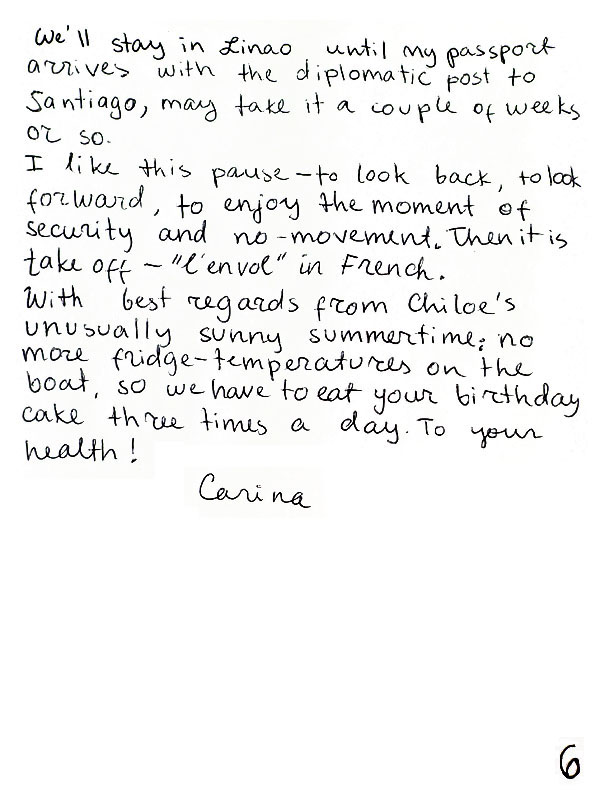 We'll stay in Linao until my passport
arrives with the diplomatic post to
Santiago, may take it a couple of weeks
or so.
I like this pause - to look back, to look
forward, to enjoy the moment of
security and no-movement. Then it is
take off - "l'envol" in French.
With best regards from Chiloe's
unusually sunny summertime: no
more fridge-temperatures on the
boat, so we have to eat your birthday
cake three times a day. To your
health!
Carina
6